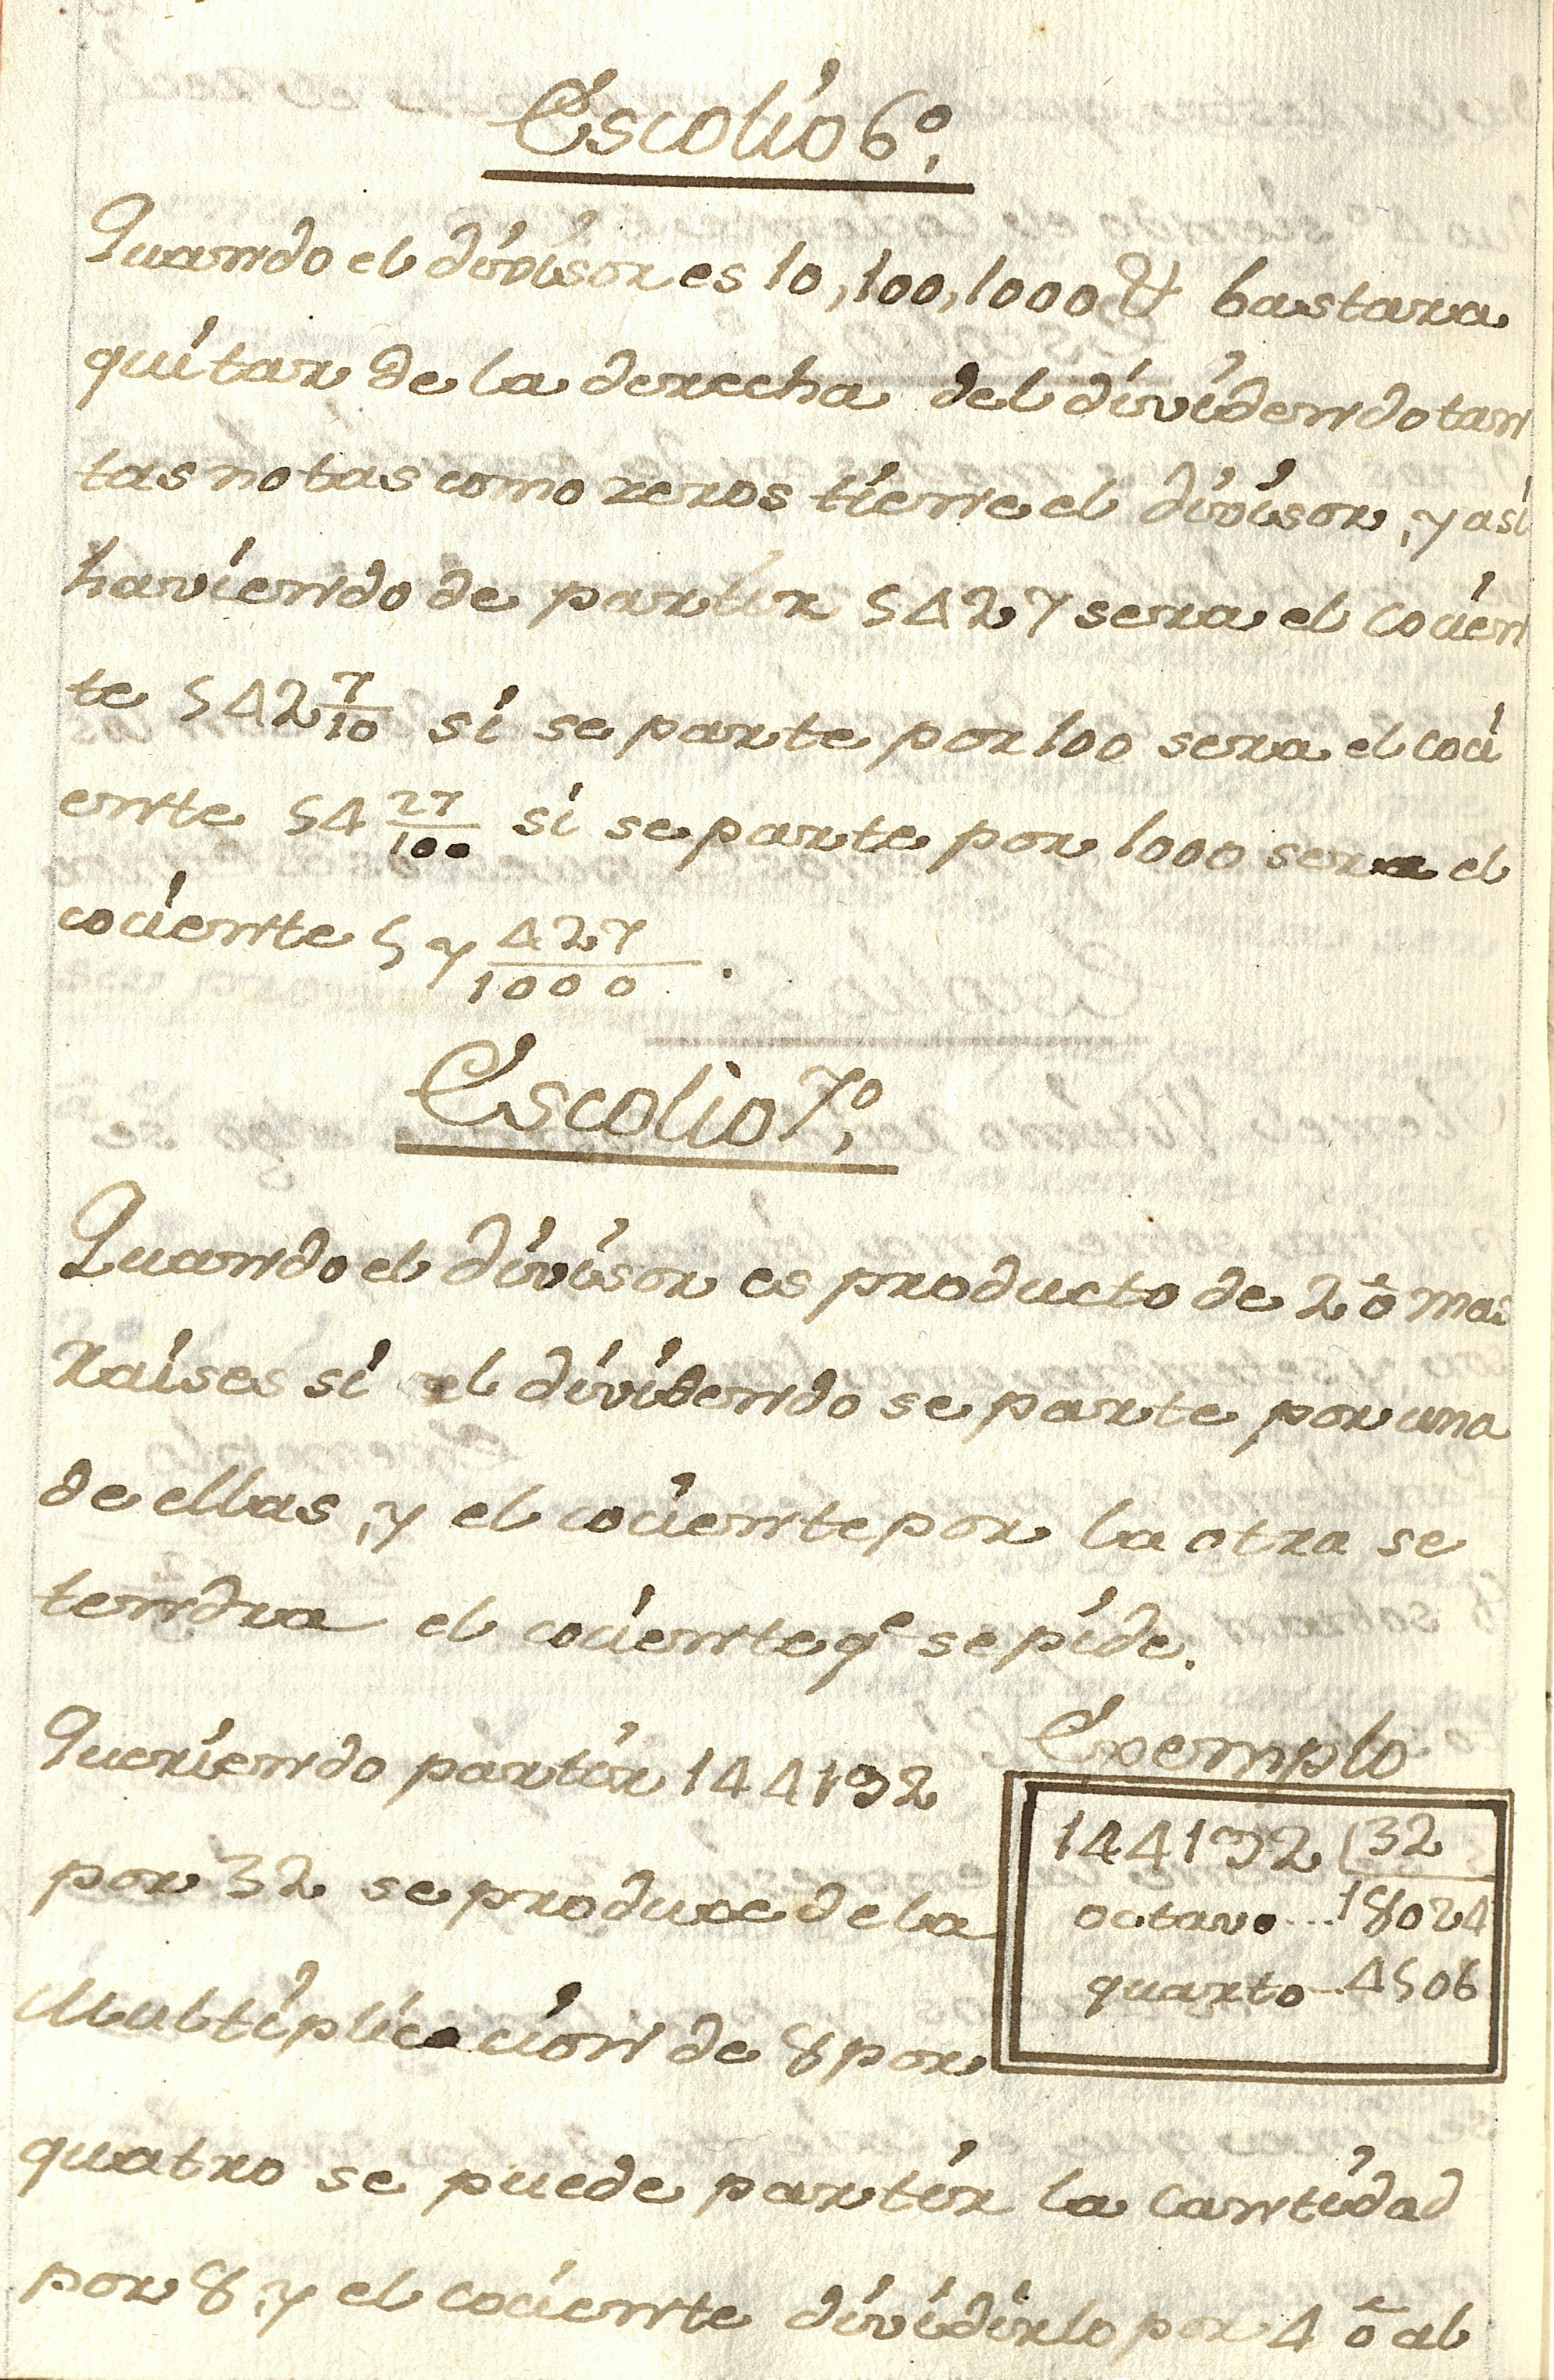 Escolio 6º,
Quando el divisor es 10, 100, 1000 & bastara
quitar de la derecha del dividendo tan
tas notas como zeros tiene el divisor, y asi
haviendo de partir 5427 sera el cocien
te 542 7/10 si se parte por 100 sera el coci
ente 54 27/100 si se parte por 1000 sera el
cociente 5 y 427/1000.
Escolio 7º,
Quando el divisor es producto de 2 ò mas
Raises si el dividendo se parte por una
de ellas, y el cociente por la otra se
tendra el cociente qe se pide.
Queriendo partir 144192
por 32 se produce de la
Multiplicacion de 8 por
Exemplo
144192 (32
octavo ... 18024
quarto ... 4506
quatro se puede partir la cantidad
por 8, y el cociente dividirlo por 4 ò al